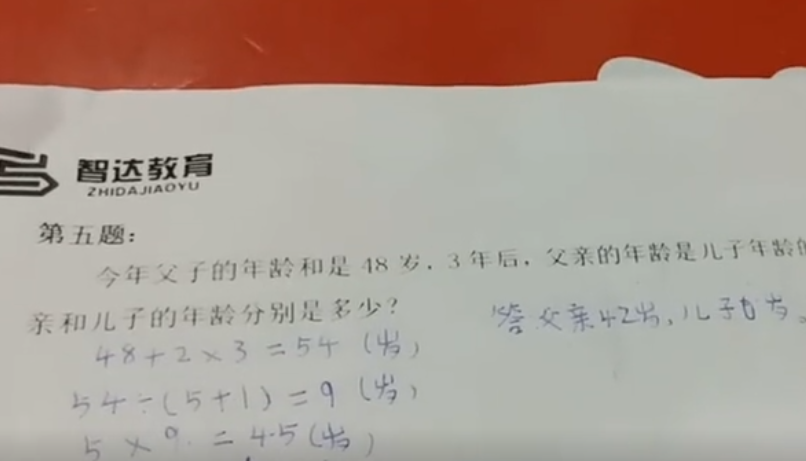 智达教育
ZHIDAJIAOYU
第五题：
今年父子的年龄和是48岁，3年后，父亲的年龄是儿子年龄的
亲和儿子的年龄分别是多少？
答父亲42岁，儿子6岁。
48+2×3=54（岁）
54÷（5+1）=9（岁）
5×9=45（岁）